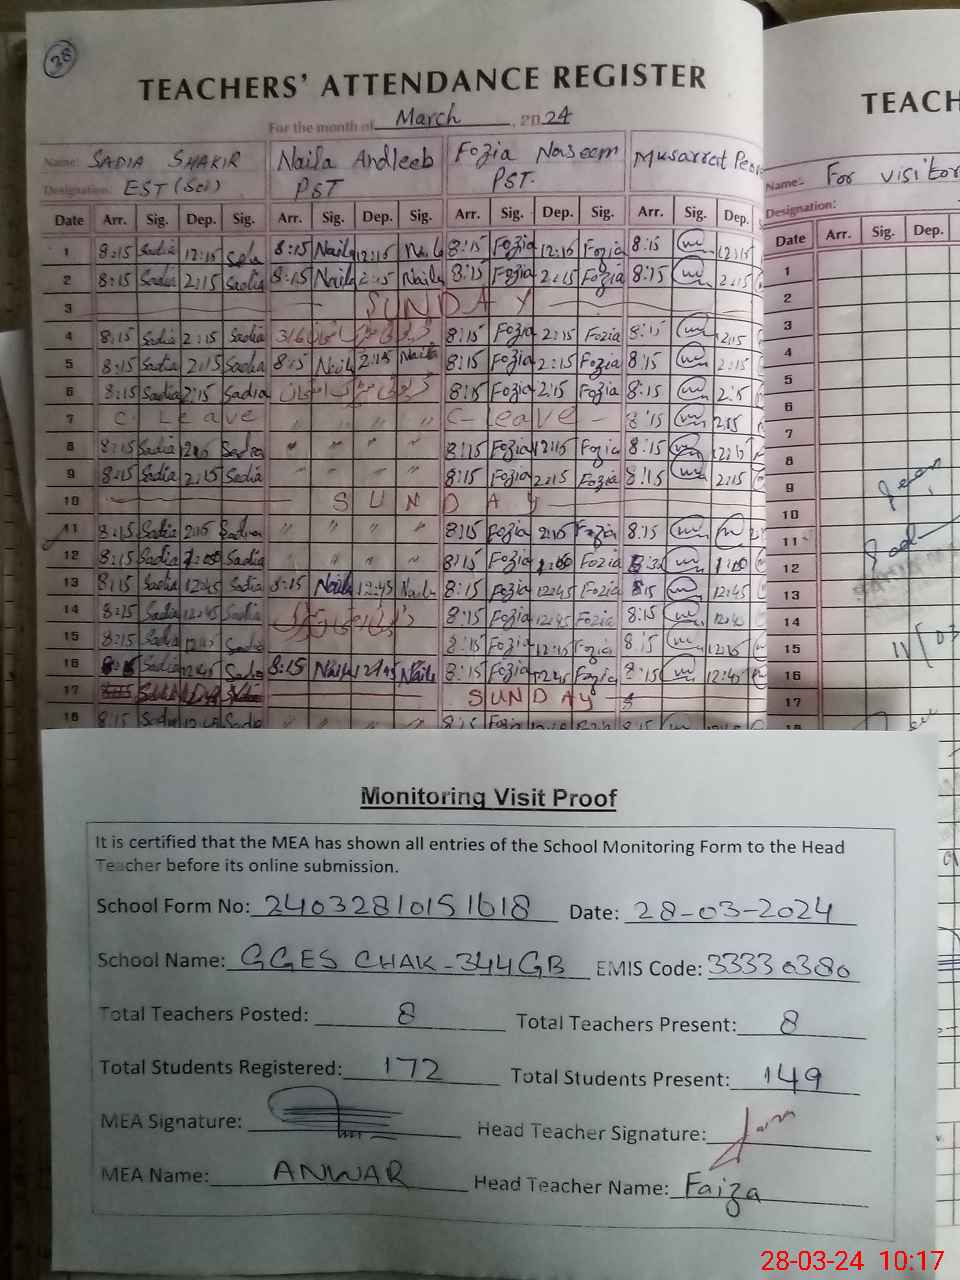 28
TEACHERS' ATTENDANCE REGISTER
For the month of March, 2024
Name: SADIA SHAKIR Naila Andleeb Fozia Naseem Musarrat
Designation: EST (Sci) PST PST.
Date Arr. Sig. Dep. Sig. Arr. Sig. Dep. Sig. Arr. Sig. Dep. Sig. Arr. Sig. Dep.
1 8:15 Sadia 12:15 8:15 Naila 12:15 Naila 8:15 Fozia 12:15 Fozia 8:15 12:15
2 8:15 Sadia 2:15 Sadia 8:15 Naila 2:15 Naila 8:15 Fozia 2:15 Fozia 8:15 2:15
3 SUNDAY
4 8:15 Sadia 2:15 Sadia 8:15 Fozia 2:15 Fozia 8:15 2:15
5 8:15 Sadia 2:15 Sadia 8:15 Naila 2:15 Naila 8:15 Fozia 2:15 Fozia 8:15 2:15
6 8:15 Sadia 2:15 Sadia 8:15 Fozia 2:15 Fozia 8:15 2:15
7 C- Leave " " " C- Leave - 8:15 2:15
8 8:15 Sadia 12:15 Sadia " " " " 8:15 Fozia 12:15 Fozia 8:15 12:15
9 8:15 Sadia 2:15 Sadia " " " " 8:15 Fozia 2:15 Fozia 8:15 2:15
10 SUNDAY
11 8:15 Sadia 2:15 Sadia " " " " 8:15 Fozia 2:15 Fozia 8:15
12 8:15 Sadia 1:00 Sadia " " " " 8:15 Fozia 1:00 Fozia 1:00
13 8:15 Sadia 12:45 Sadia 8:15 Naila 12:45 Naila 8:15 Fozia 12:45 Fozia 8:15 12:45
14 8:15 Sadia 12:45 Sadia 8:15 Fozia 12:45 Fozia 8:15 12:45
15 8:15 Sadia 12:15 Sadia 8:15 Fozia 12:15 Fozia 8:15 12:15
16 8:15 Sadia 12:45 Sadia 8:15 Naila 12:45 Naila 8:15 Fozia 12:45 Fozia 8:15 12:45
17 SUNDAY
18 8:15 Sadia Sadia " " " " 8:15 Fozia Fozia 8:15
TEACH
Name:- For visitor
Designation:
Date Arr. Sig. Dep.
1
2
3
4
5
6
7
8
9
10
11
12
13
14
15
16
17
18
Monitoring Visit Proof
It is certified that the MEA has shown all entries of the School Monitoring Form to the Head
Teacher before its online submission.
School Form No: 24032810151618 Date: 28-03-2024
School Name: GGES CHAK-344GB EMIS Code: 33330380
Total Teachers Posted: 8 Total Teachers Present: 8
Total Students Registered: 172 Total Students Present: 149
MEA Signature: Head Teacher Signature:
MEA Name: ANWAR Head Teacher Name: Faiza
28-03-24 10:17